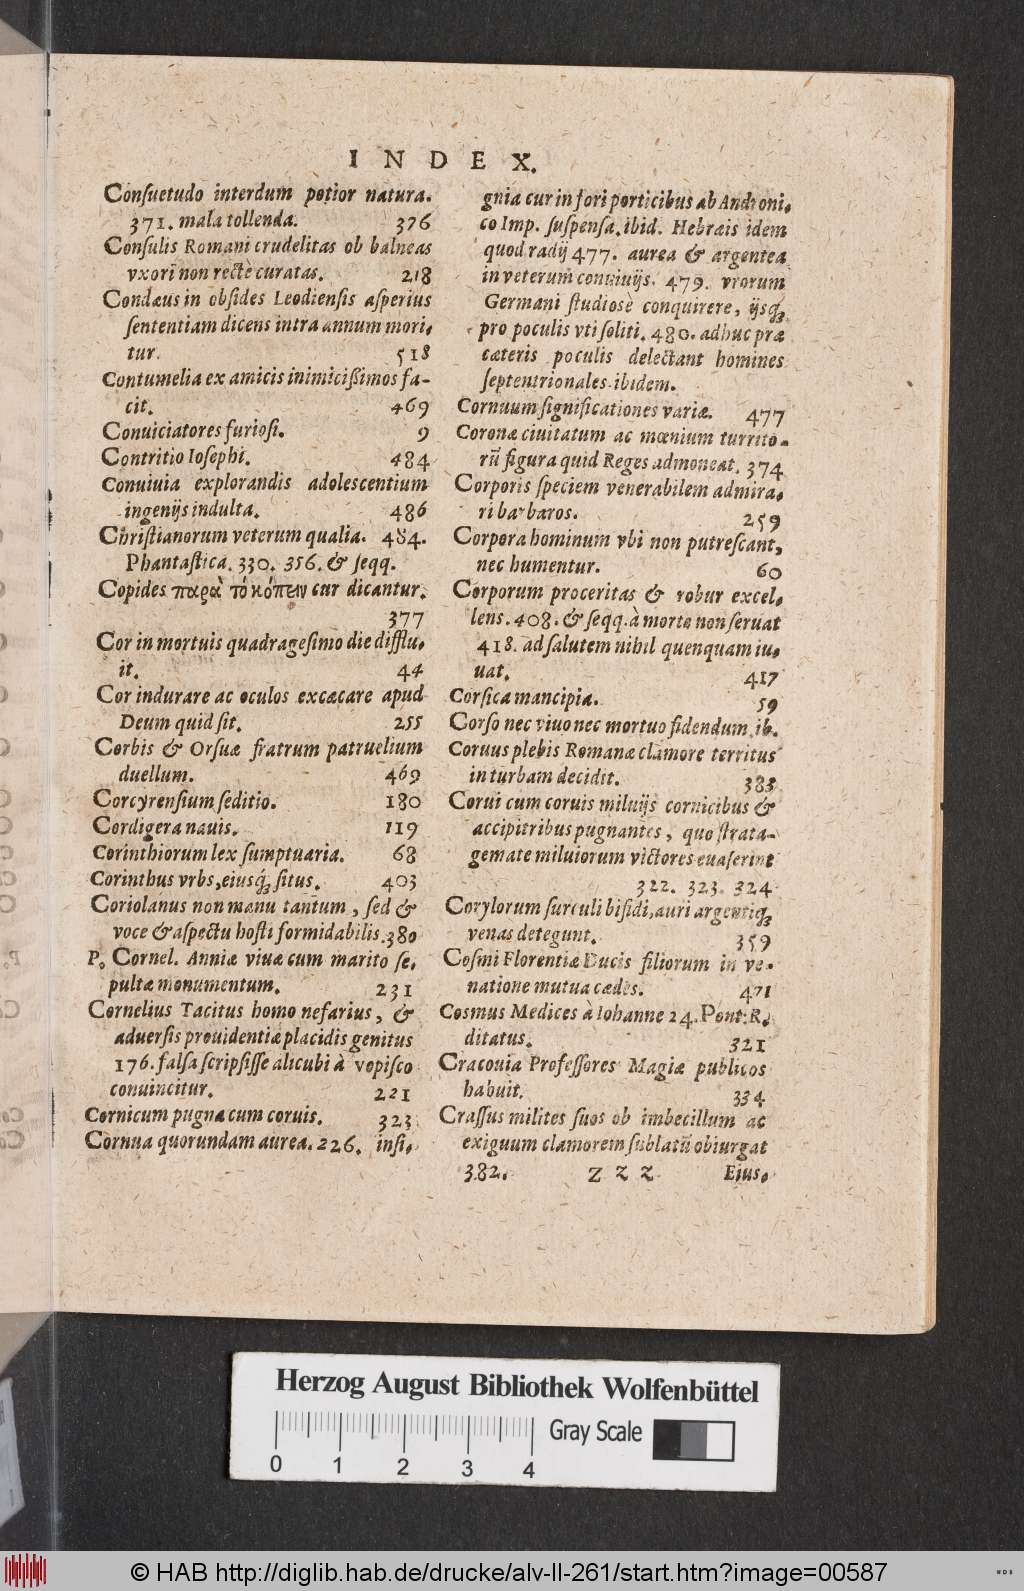 INDEX.
Conſuetudo interdum potior natura.
371. mala tollenda. 376
Conſulis Romani crudelitas ob balneas
vxori non rectè curatas. 218
Condæus in obſides Leodienſis aſperius
ſententiam dicens intra annum mori-
tur. 518
Contumelia ex amicis inimicißimos fa-
cit. 469
Conuiciatores furioſi. 9
Contritio Ioſephi. 484
Conuiuia explorandis adoleſcentium
ingenijs indulta. 486
Chriſtianorum veterum qualia. 484.
Phantaſtica. 330. 356. & ſeqq.
Copides παρὰ τὸ κόπειν cur dicantur.
377
Cor in mortuis quadrageſimo die difflu-
it. 44
Cor indurare ac oculos excæcare apud
Deum quid ſit. 255
Corbis & Orſuæ fratrum patruelium
duellum. 469
Corcyrenſium ſeditio. 180
Cordigera nauis. 119
Corinthiorum lex ſumptuaria. 68
Corinthus vrbs, eiusq́; ſitus. 403
Coriolanus non manu tantum, ſed &
voce & aſpectu hoſti formidabilis. 380
P. Cornel. Anniæ viuæ cum marito ſe-
pultæ monumentum. 231
Cornelius Tacitus homo nefarius, &
aduerſis prouidentiæ placidis genitus
176. falſa ſcripſiſſe alicubi à vopiſco
conuincitur. 221
Cornicum pugna cum coruis. 323
Cornua quorundam aurea. 226. inſi-
gnia cur in fori porticibus ab Androni-
co Imp. ſuſpenſa. ibid. Hebræis idem
quod radij 477. aurea & argentea
in veterum conuiuijs. 479. vrorum
Germani ſtudiosè conquirere, ijsq́;
pro poculis vti ſoliti. 480. adhuc præ
cæteris poculis delectant homines
ſeptentrionales. ibidem.
Cornuum ſignificationes variæ. 477
Coronæ ciuitatum ac mœnium turrito-
rū figura quid Reges admoneat. 374
Corporis ſpeciem venerabilem admira-
ri barbaros. 259
Corpora hominum vbi non putreſcant,
nec humentur. 60
Corporum proceritas & robur excel-
lens. 408. & ſeqq. à morte non ſeruat
418. ad ſalutem nihil quenquam iu-
uat. 417
Corſica mancipia. 59
Corſo nec viuo nec mortuo fidendum. ib.
Coruus plebis Romanæ clamore territus
in turbam decidit. 383
Corui cum coruis miluijs cornicibus &
accipitribus pugnantes, quo ſtrata-
gemate miluiorum victores euaſerint
322. 323. 324
Corylorum ſurculi bifidi, auri argentiq́;
venas detegunt. 359
Coſmi Florentiæ Ducis filiorum in ve-
natione mutua cædes. 471
Cosmus Medices à Iohanne 24. Pont. R.
ditatus. 321
Cracouia Profeſſores Magiæ publicos
habuit. 334
Craſſus milites ſuos ob imbecillum ac
exiguum clamorem ſublatū obiurgat
382. Z z z Eius-
Herzog August Bibliothek Wolfenbüttel
Gray Scale
0 1 2 3 4
© HAB http://diglib.hab.de/drucke/alv-ll-261/start.htm?image=00587